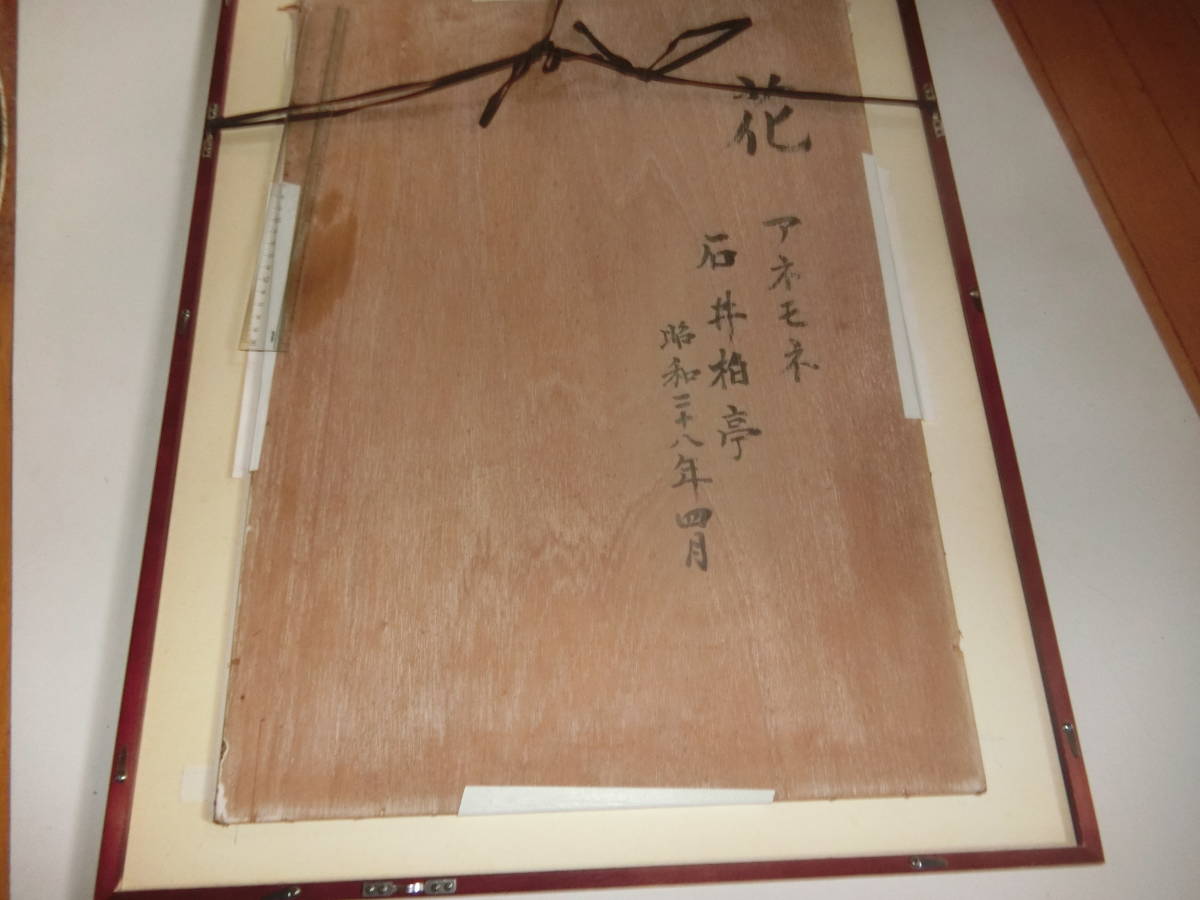 花
アネモネ
石井柏亭
昭和二十八年四月